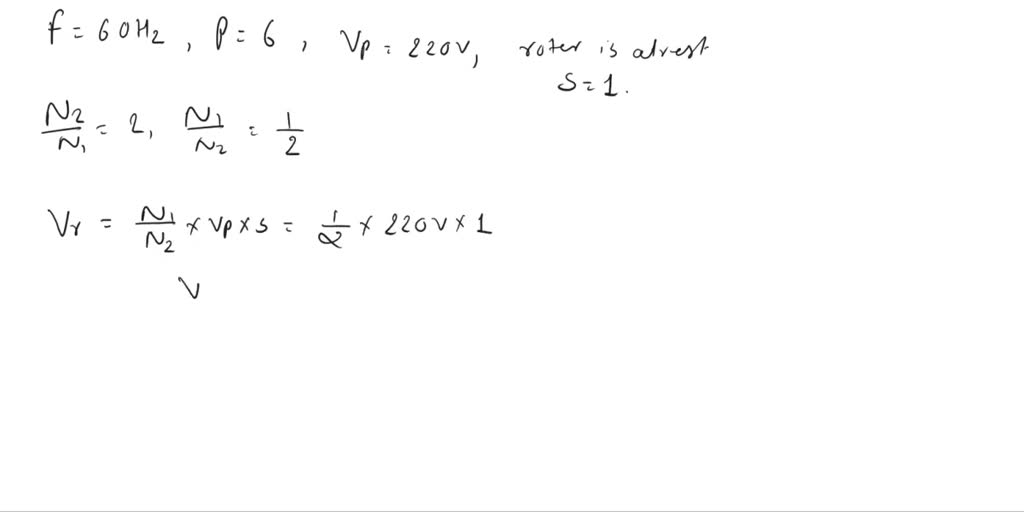 f = 60Hz , P = 6 , Vp = 220V, roter is atrest
S = 1.
N2/N1 = 2, N1/N2 = 1/2
Vr = N1/N2 × Vp × s = 1/2 × 220V × 1
V